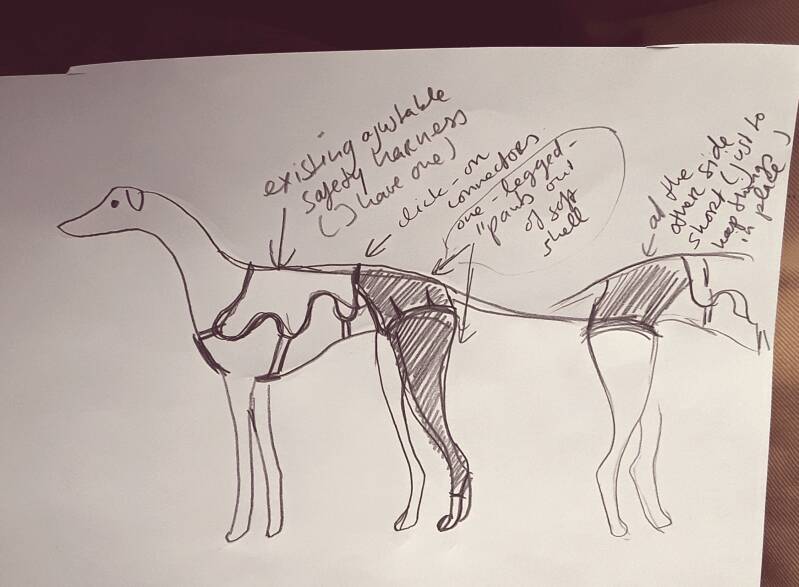 existing ajustable
safety harness
(I have one)
click-on
connectors
one-legged-
"pants" out
of soft
shell
at the
other side
short (just to
keep things
in place)